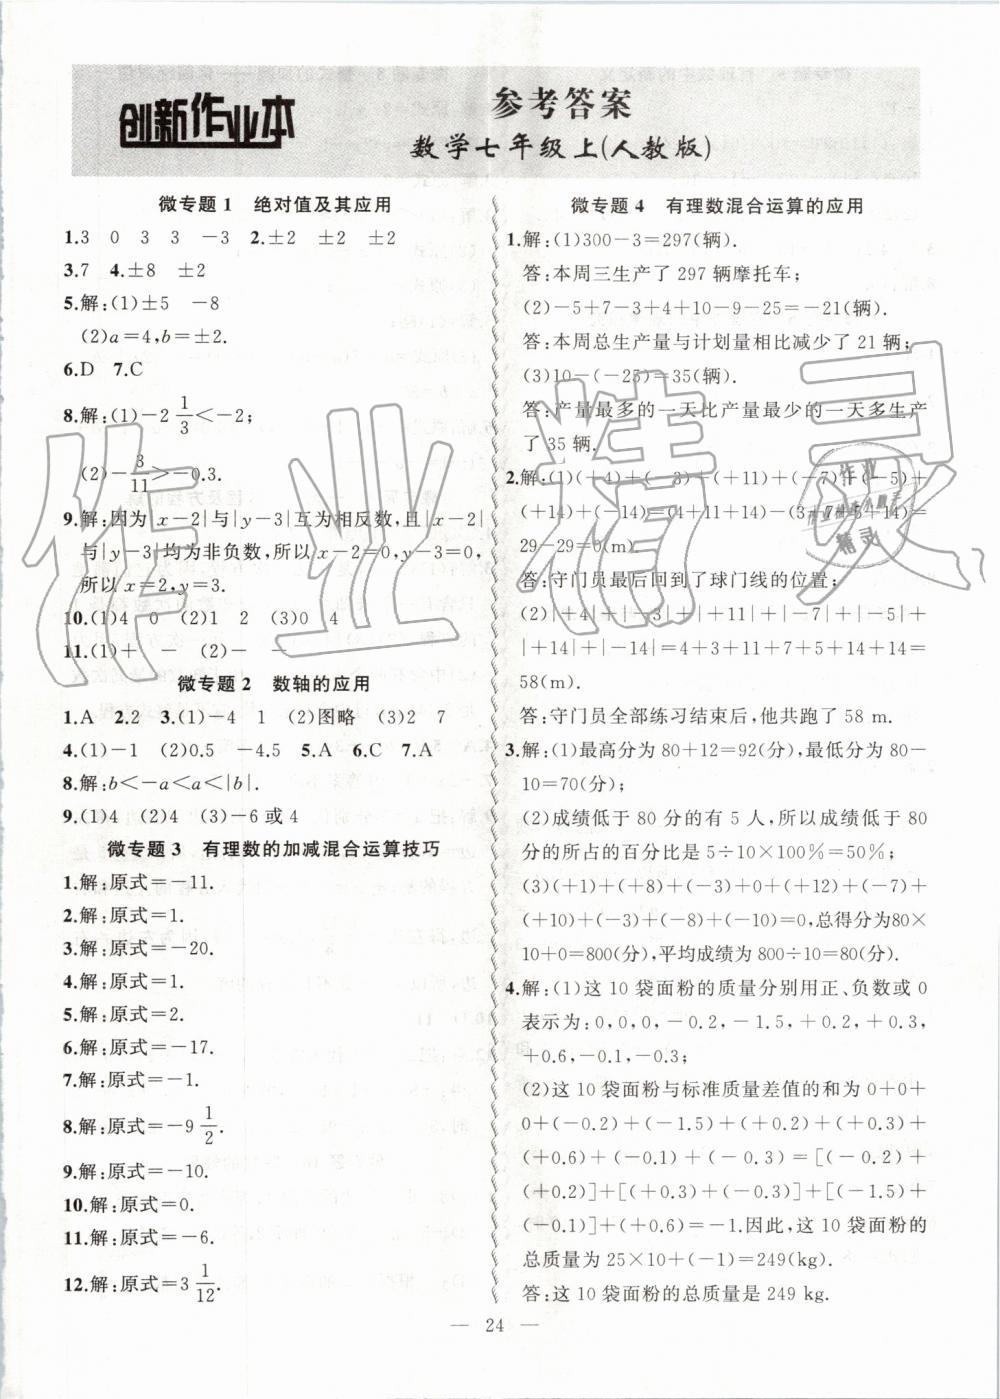 创新作业本
参考答案
数学七年级上(人教版)
微专题1 绝对值及其应用
1.3 0 3 3 －3 2.±2 ±2 ±2
3.7 4.±8 ±2
5.解:(1)±5 －8
(2)a＝4,b＝±2.
6.D 7.C
8.解:(1)－2 1/3＜－2;
(2)－3/11＞－0.3.
9.解:因为|x－2|与|y－3|互为相反数,且|x－2|
与|y－3|均为非负数,所以x－2＝0,y－3＝0,
所以x＝2,y＝3.
10.(1)4 0 (2)1 2 (3)0 4
11.(1)＋ － (2)－ －
微专题2 数轴的应用
1.A 2.2 3.(1)－4 1 (2)图略 (3)2 7
4.(1)－1 (2)0.5 －4.5 5.A 6.C 7.A
8.解:b＜－a＜a＜|b|.
9.(1)4 (2)4 (3)－6或4
微专题3 有理数的加减混合运算技巧
1.解:原式＝－11.
2.解:原式＝1.
3.解:原式＝－20.
4.解:原式＝1.
5.解:原式＝2.
6.解:原式＝－17.
7.解:原式＝－1.
8.解:原式＝－9 1/2.
9.解:原式＝－10.
10.解:原式＝0.
11.解:原式＝－6.
12.解:原式＝3 1/12.
微专题4 有理数混合运算的应用
1.解:(1)300－3＝297(辆).
答:本周三生产了297辆摩托车;
(2)－5＋7－3＋4＋10－9－25＝－21(辆).
答:本周总生产量与计划量相比减少了21辆;
(3)10－(－25)＝35(辆).
答:产量最多的一天比产量最少的一天多生产
了35辆.
2.解:(1)(＋4)＋(－3)＋(＋11)＋(－7)＋(－5)＋
(＋14)＋(－14)＝(4＋11＋14)－(3＋7＋5＋14)＝
29－29＝0(m).
答:守门员最后回到了球门线的位置;
(2)|＋4|＋|－3|＋|＋11|＋|－7|＋|－5|＋
|＋14|＋|－14|＝4＋3＋11＋7＋5＋14＋14＝
58(m).
答:守门员全部练习结束后,他共跑了58 m.
3.解:(1)最高分为80＋12＝92(分),最低分为80－
10＝70(分);
(2)成绩低于80分的有5人,所以成绩低于80
分的所占的百分比是5÷10×100%＝50%;
(3)(＋1)＋(＋8)＋(－3)＋0＋(＋12)＋(－7)＋
(＋10)＋(－3)＋(－8)＋(－10)＝0,总得分为80×
10＋0＝800(分),平均成绩为800÷10＝80(分).
4.解:(1)这10袋面粉的质量分别用正、负数或0
表示为:0,0,0,－0.2,－1.5,＋0.2,＋0.3,
＋0.6,－0.1,－0.3;
(2)这10袋面粉与标准质量差值的和为0＋0＋
0＋(－0.2)＋(－1.5)＋(＋0.2)＋(＋0.3)＋
(＋0.6)＋(－0.1)＋(－0.3)＝[(－0.2)＋
(＋0.2)]＋[(＋0.3)＋(－0.3)]＋[(－1.5)＋
(－0.1)]＋(＋0.6)＝－1.因此,这10袋面粉的
总质量为25×10＋(－1)＝249(kg).
答:这10袋面粉的总质量是249 kg.
— 24 —
作业精灵
作业
精灵